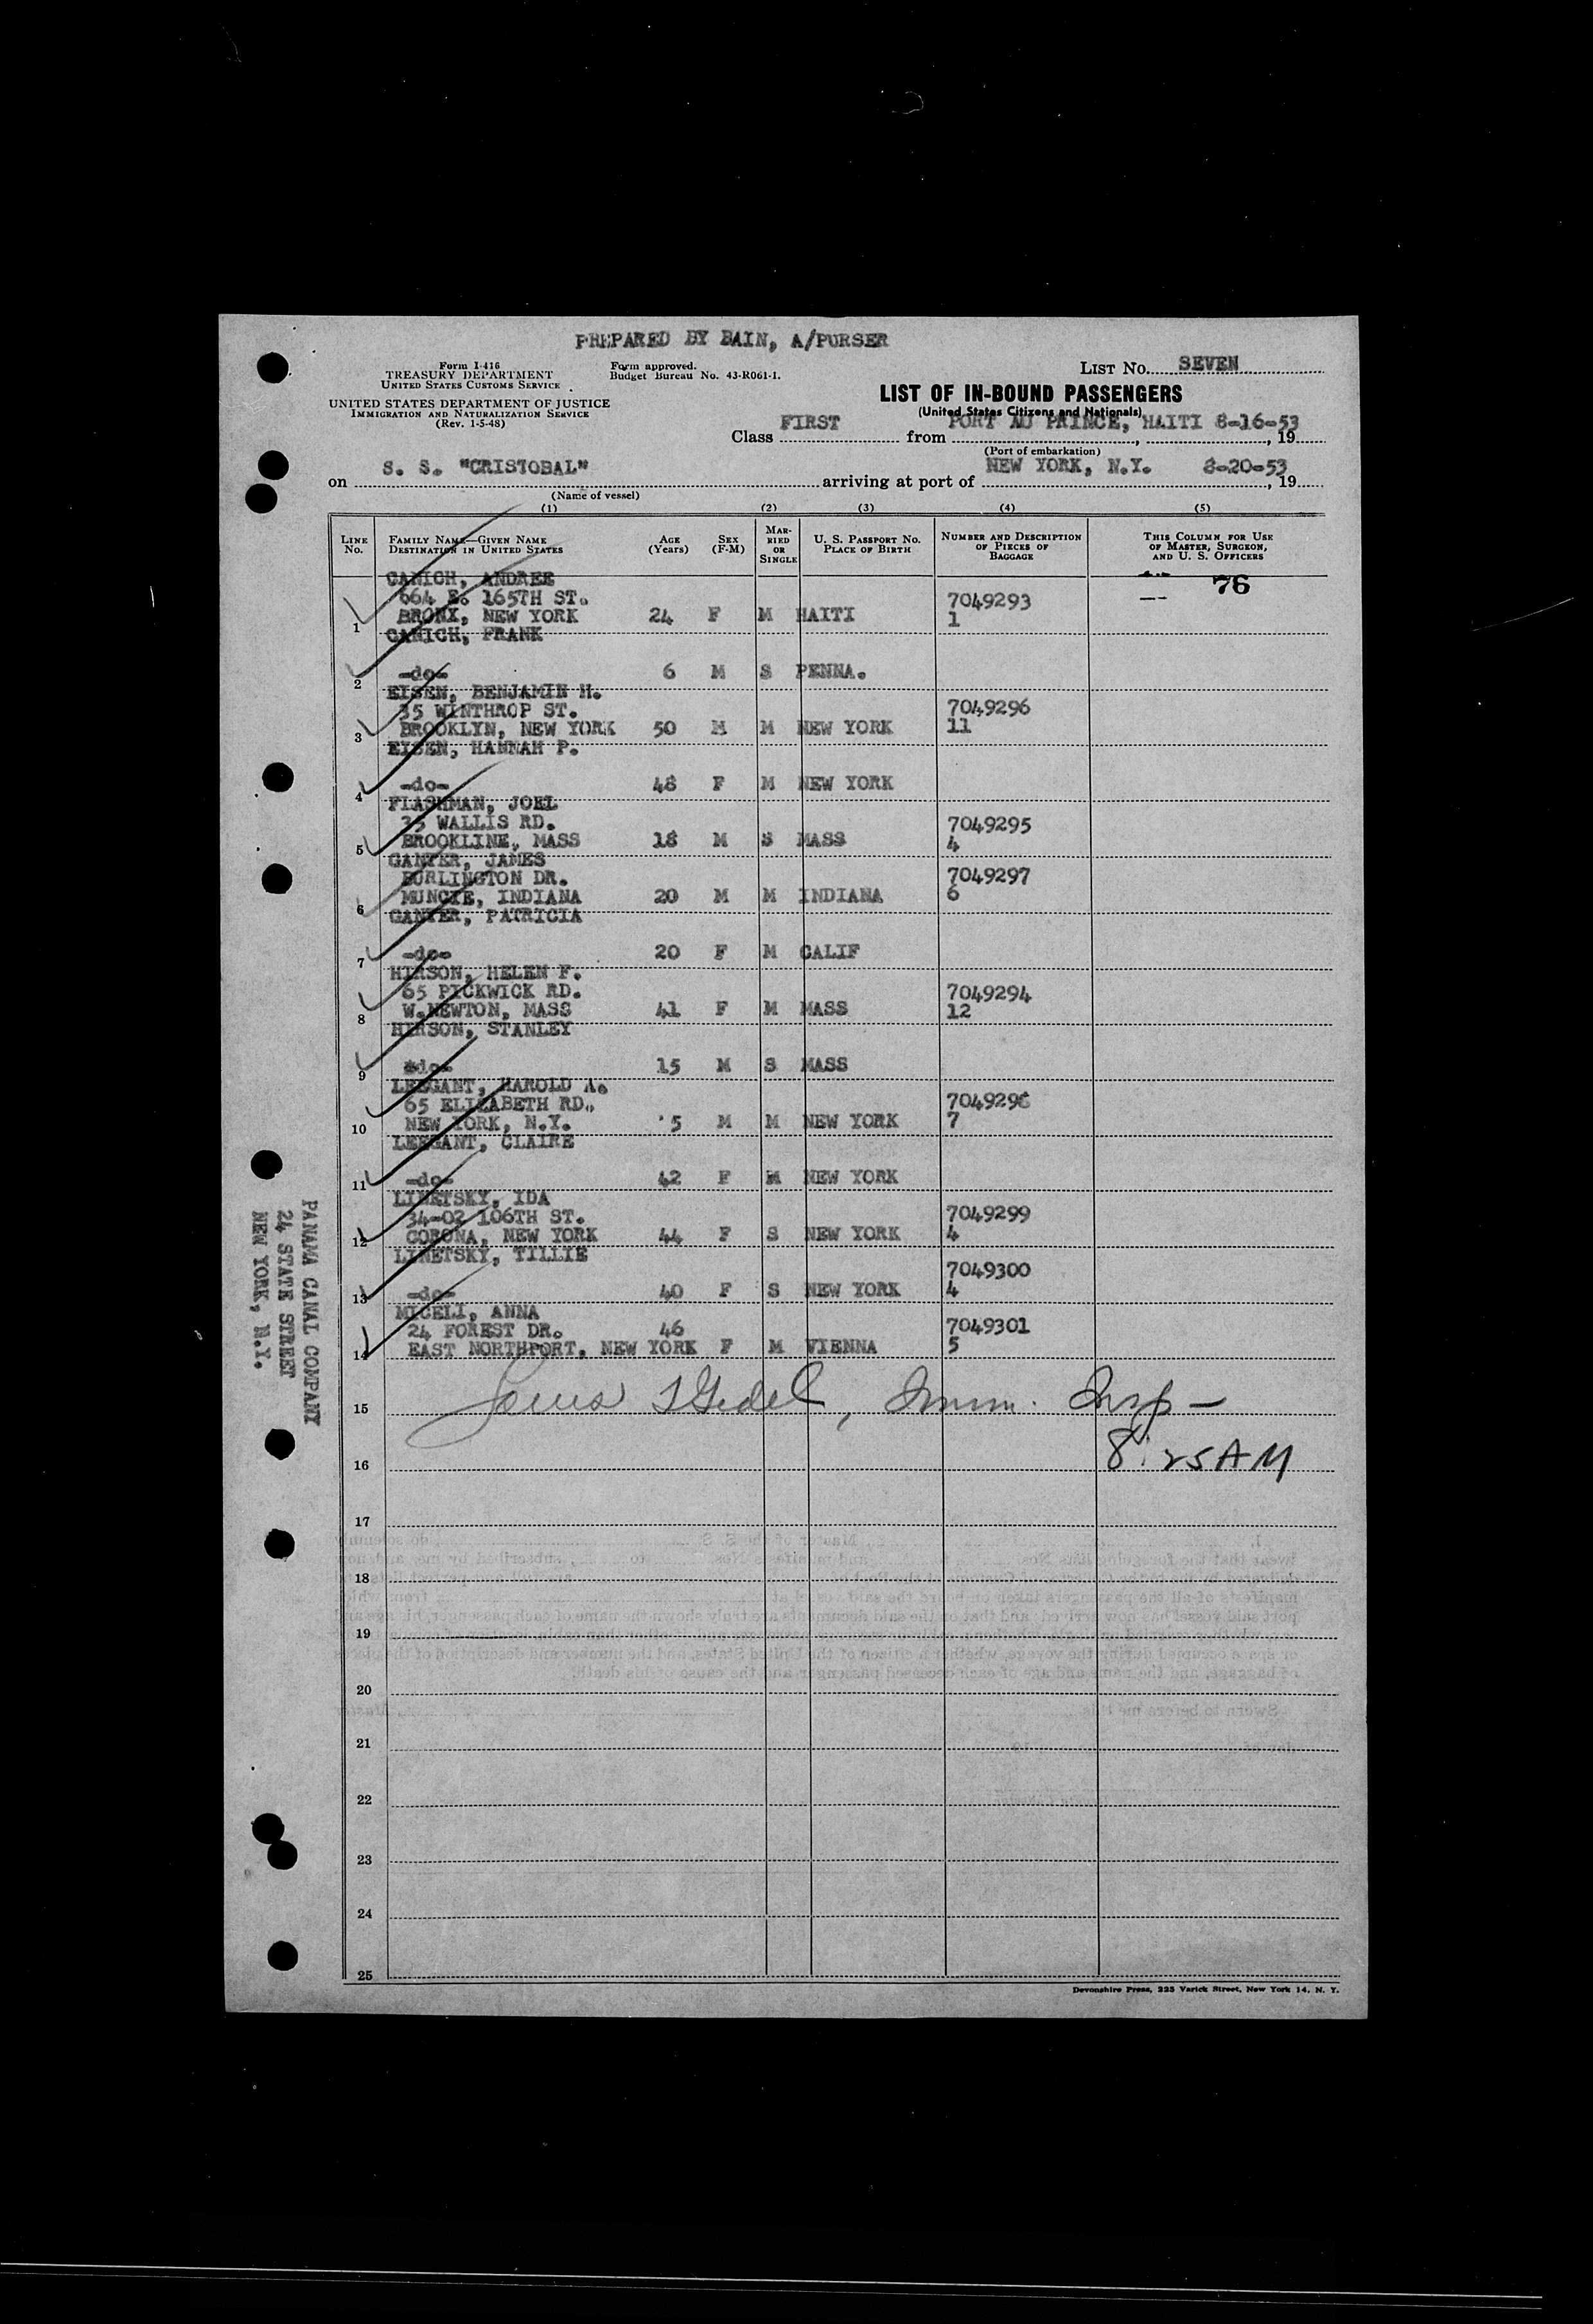 PREPARED BY BAIN, A/PURSER
Form I-416
TREASURY DEPARTMENT
UNITED STATES CUSTOMS SERVICE
UNITED STATES DEPARTMENT OF JUSTICE
IMMIGRATION AND NATURALIZATION SERVICE
(Rev. 1-5-48)
Form approved.
Budget Bureau No. 43-R061-1.
LIST No. SEVEN
LIST OF IN-BOUND PASSENGERS
(United States Citizens and Nationals)
Class FIRST from PORT AU PRINCE, HAITI 8-16-53, 19
(Port of embarkation)
on S. S. "CRISTOBAL" arriving at port of NEW YORK, N.Y. 8-20-53, 19
(Name of vessel)
(1) (2) (3) (4) (5)
LINE No. FAMILY NAME—GIVEN NAME DESTINATION IN UNITED STATES AGE (Years) SEX (F-M) MARRIED OR SINGLE U. S. PASSPORT NO. PLACE OF BIRTH NUMBER AND DESCRIPTION OF PIECES OF BAGGAGE THIS COLUMN FOR USE OF MASTER, SURGEON, AND U. S. OFFICERS
76
CANICH, ANDREE
664 E. 165TH ST. 7049293
1 BRONX, NEW YORK 24 F M HAITI 1
CANICH, FRANK
2 -do- 6 M S PENNA.
EISEN, BENJAMIN H.
35 WINTHROP ST. 7049296
3 BROOKLYN, NEW YORK 50 M M NEW YORK 11
EISEN, HANNAH P.
4 -do- 48 F M NEW YORK
FLASHMAN, JOEL
35 WALLIS RD. 7049295
5 BROOKLINE, MASS 18 M S MASS 4
GANTER, JAMES
BURLINGTON DR. 7049297
6 MUNCIE, INDIANA 20 M M INDIANA 6
GANTER, PATRICIA
7 -do- 20 F M CALIF
HIRSON, HELEN F.
65 PICKWICK RD. 7049294
8 W.NEWTON, MASS 41 F M MASS 12
HIRSON, STANLEY
9 *do- 15 M S MASS
LEEGANT, HAROLD A.
65 ELIZABETH RD.
10 NEW YORK, N.Y. 5 M M NEW YORK 7
LEEGANT, CLAIRE
11 -do- 42 F M NEW YORK
LINETSKY, IDA
34-02 106TH ST. 7049299
12 CORONA, NEW YORK 44 F S NEW YORK 4
LINETSKY, TILLIE
7049300
13 -do- 40 F S NEW YORK 4
MICELI, ANNA
24 FOREST DR. 46 7049301
14 EAST NORTHPORT, NEW YORK F M VIENNA 5
15 Imm. Insp-
16 8:25AM
17
18
19
20
21
22
23
24
25
Devonshire Press, 225 Varick Street, New York 14, N. Y.
PANAMA CANAL COMPANY
24 STATE STREET
NEW YORK, N.Y.